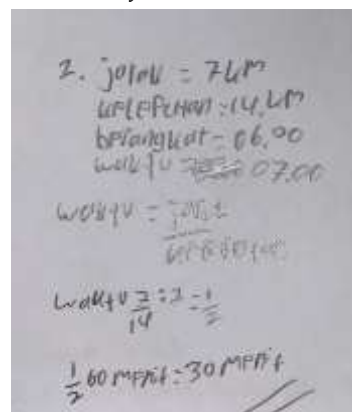 2. jarak = 7 KM
kecepatan = 14 KM
berangkat = 06.00
waktu = 07.00
waktu = jarak
kecepatan
waktu 7/14 : 7 = 1/2
1/2 60 menit = 30 menit